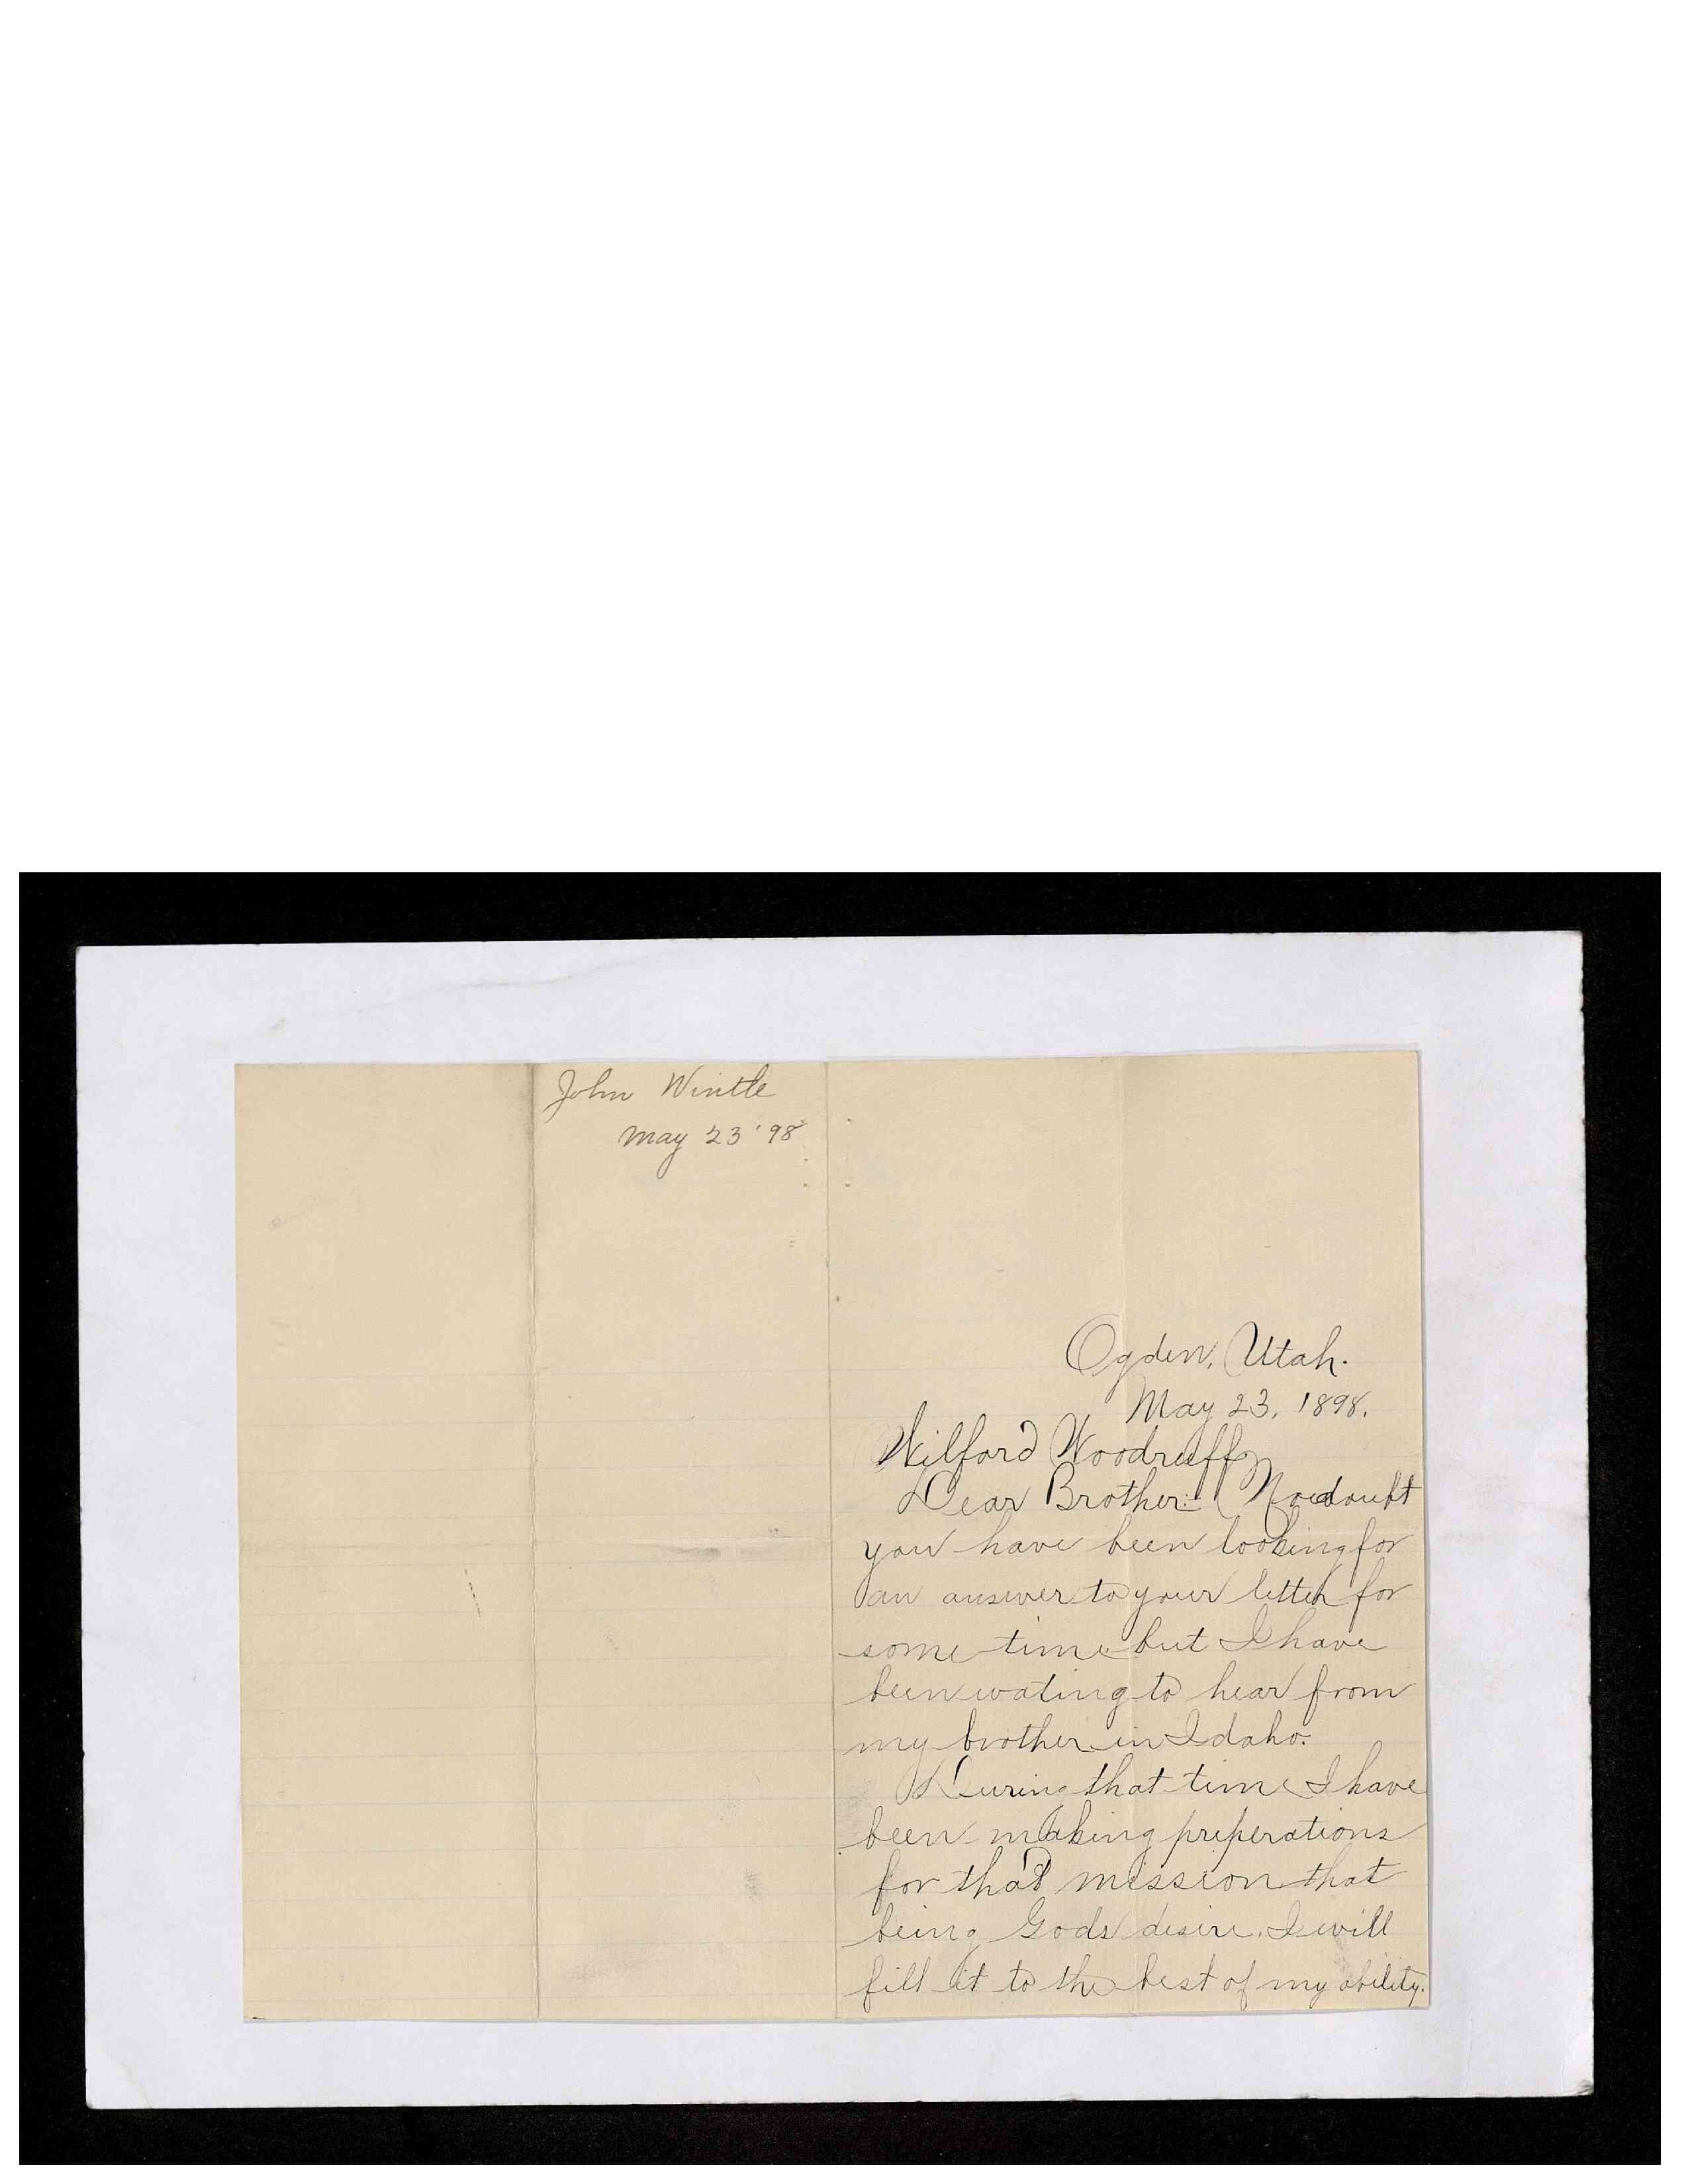 John Wintle
May 23 '98
Ogden, Utah.
May 23, 1898.
Wilford Woodruff
Dear Brother:- No doubt
you have been looking for
an answer to your letter for
some time but I have
been wating to hear from
my brother in Idaho.
During that time I have
been making preperations
for that mission that
being Gods desire. I will
fill it to the best of my ability.